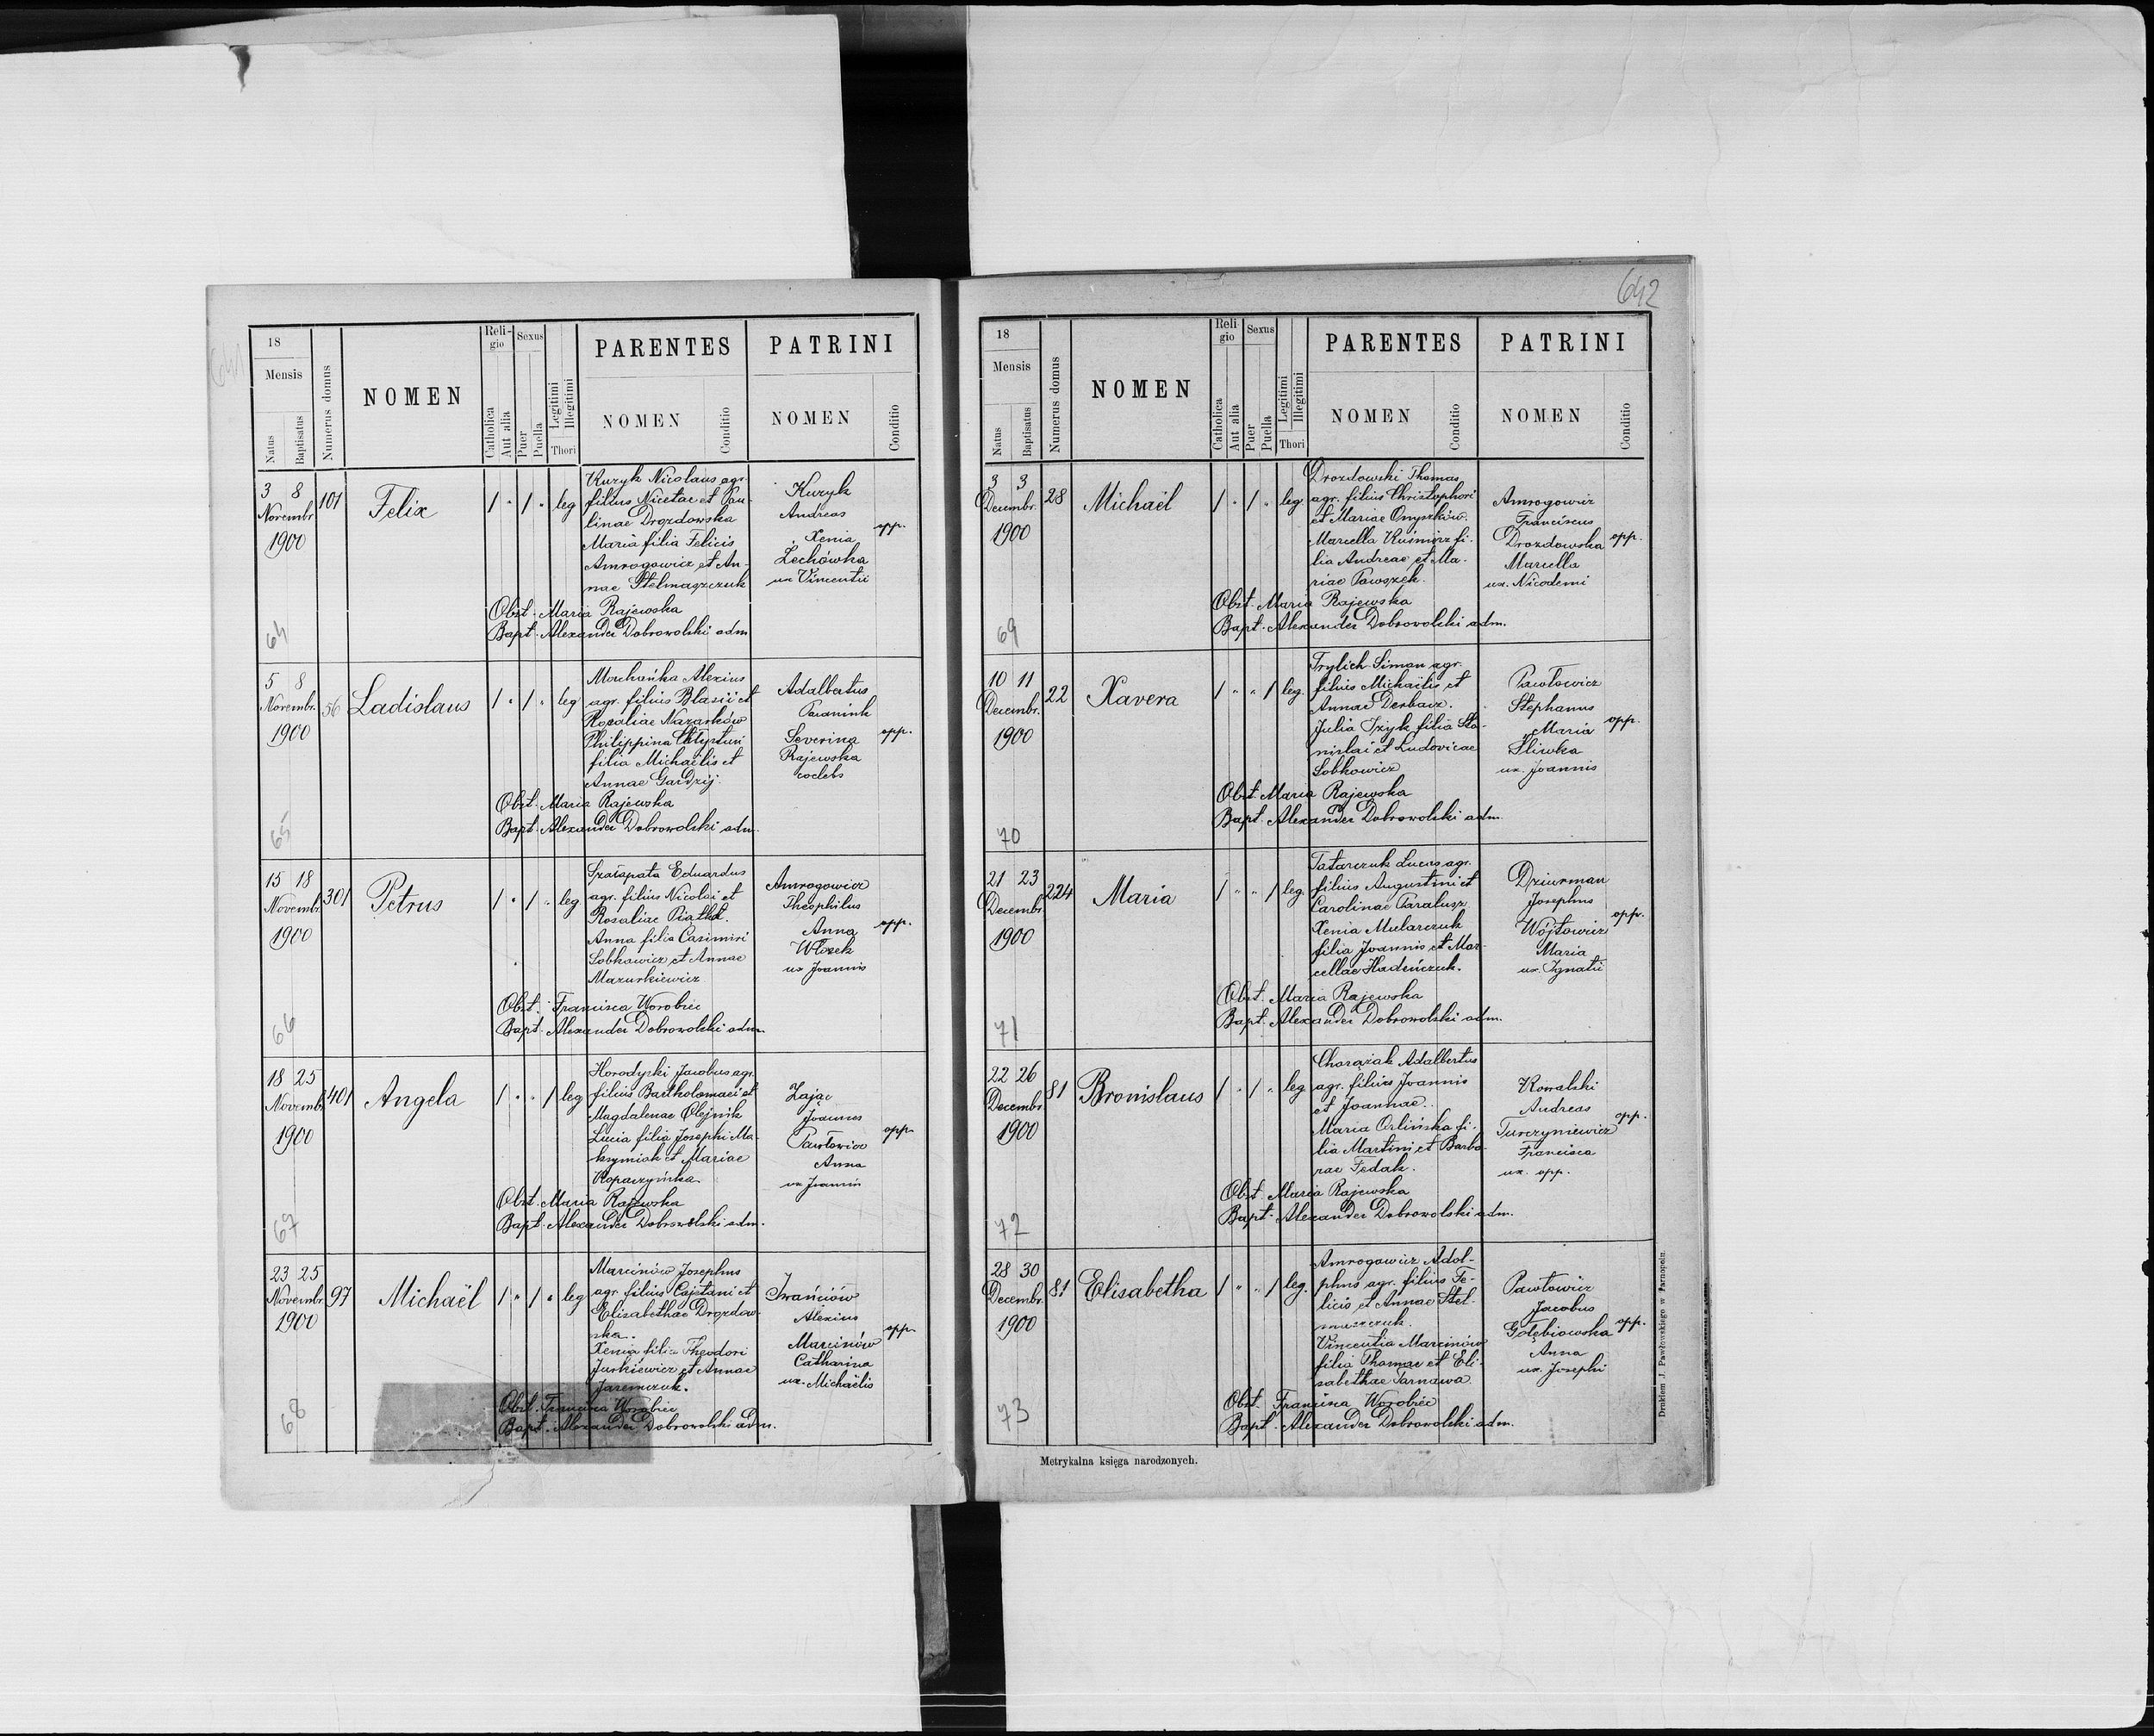 641
18
Mensis
Natus
Baptisatus
Numerus domus
NOMEN
Religio
Catholica
Aut alia
Sexus
Puer
Puella
Legitimi
Illegitimi
Thori
PARENTES
NOMEN
Conditio
PATRINI
NOMEN
Conditio
3 8
Novembr.
1900
64
101
Felix
/ " / " leg
Kuzyk Nicolaus agr.
filius Nicetae et Pau-
linae Drozdowska
Maria filia Felicis
Amrogowicz et An-
nae Stelmaszczuk
Kuzyk
Andreas
Xenia
Zechówka
ux Vincentii
opp.
Obst. Maria Rajewska
Bapt. Alexander Dobrowolski adm
5 8
Novembr.
1900
65
56
Ladislaus
/ " / " leg
Alexius
agr. filius Blasii et
Rozaliae Nazarków
Philippina
filia Michaëlis et
Annae
Adalbertus
Severina
Rajewska
coelebs
opp.
Obst. Maria Rajewska
Bapt. Alexander Dobrowolski adm.
15 18
Novembr.
1900
66
301
Petrus
/ " / " leg
Eduardus
agr. filius Nicolai et
Rosaliae
Anna filia Casimiri
Sobkowicz et Annae
Mazurkiewicz
Amrogowicz
Theophilus
Anna
Włozek
ux Joannis
opp.
Obst. Francisca Worobiec
Bapt. Alexander Dobrowolski adm.
18 25
Novembr.
1900
67
401
Angela
/ " " / leg
Horodyski Jacobus agr.
filius Bartholomaei et
Magdalenae Olejnik
Lucia filia Josephi Ma-
ksymiak et Mariae
Kopaczyńska.
Zając
Joannes
Pawłowicz
Anna
ux Joannis
opp.
Obst. Maria Rajewska
Bapt. Alexander Dobrowolski adm.
23 25
Novembr.
1900
68
97
Michaël
/ " / " leg
Marcinów Josephus
agr. filius Cajetani et
Elisabethae Drozdow-
ska.
Xenia filia Theodori
Jurkiewicz et Annae
Jaremczuk.
Iwańciów
Alexius
Marcinów
Catharina
ux. Michaëlis
opp.
Obst. Francisca Worobiec
Bapt. Alexander Dobrowolski adm.
642
18
Mensis
Natus
Baptisatus
Numerus domus
NOMEN
Religio
Catholica
Aut alia
Sexus
Puer
Puella
Legitimi
Illegitimi
Thori
PARENTES
NOMEN
Conditio
PATRINI
NOMEN
Conditio
3 3
Decembr.
1900
69
28
Michaël
/ " / " leg.
Drozdowski Thomas
agr. filius Christophori
et Mariae Onyszków.
Marcella Kuśnierz fi-
lia Andreae et Ma-
riae Pawszek.
Amrogowicz
Franciscus
Drozdowska
Marcella
ux. Nicodemi
opp.
Obst. Maria Rajewska
Bapt. Alexander Dobrowolski adm.
10 11
Decembr.
1900
70
22
Xavera
/ " " / leg.
Trylich Simon agr.
filius Michaëlis et
Annae Derbacz.
Julia Iżyk filia Sta-
nislai et Ludovicae
Sobkowicz
Pawłowicz
Stephanus
Maria
Śliwka
ux. Joannis
opp.
Obst. Maria Rajewska
Bapt. Alexander Dobrowolski adm.
21 23
Decembr.
1900
71
224
Maria
/ " " / leg.
Tatarczuk Lucas agr.
filius Augustini et
Carolinae Taratusz
Xenia Mularczuk
filia Joannis et Mar-
cellae Hadeńczuk.
Dziurman
Josephus
Wójtowicz
Maria
ux. Ignatii
opp.
Obst. Maria Rajewska
Bapt. Alexander Dobrowolski adm.
22 26
Decembr.
1900
72
81
Bronislaus
/ " / " leg
Chorążak Adalbertus
agr. filius Joannis
et Joannae.
Maria Orlińska fi-
lia Martini et Barba-
rae Fedak.
Kowalski
Andreas
Turczyniewicz
Francisca
ux. opp.
opp.
Obst. Maria Rajewska
Bapt. Alexander Dobrowolski adm.
28 30
Decembr.
1900
73
81
Elisabetha
/ " " / leg.
Amrogowicz Adol-
phus agr. filius Fe-
licis et Annae Stel-
maszczuk.
Vincentia Marcinów
filia Thomae et Eli-
sabethae Tarnawa
Pawłowicz
Jacobus
Gołębiowska
Anna
ux. Josephi
opp.
Obst. Francisca Worobiec
Bapt. Alexander Dobrowolski adm.
Metrykalna księga narodzonych.
Drukiem J. Pawłowskiego w Tarnopolu.